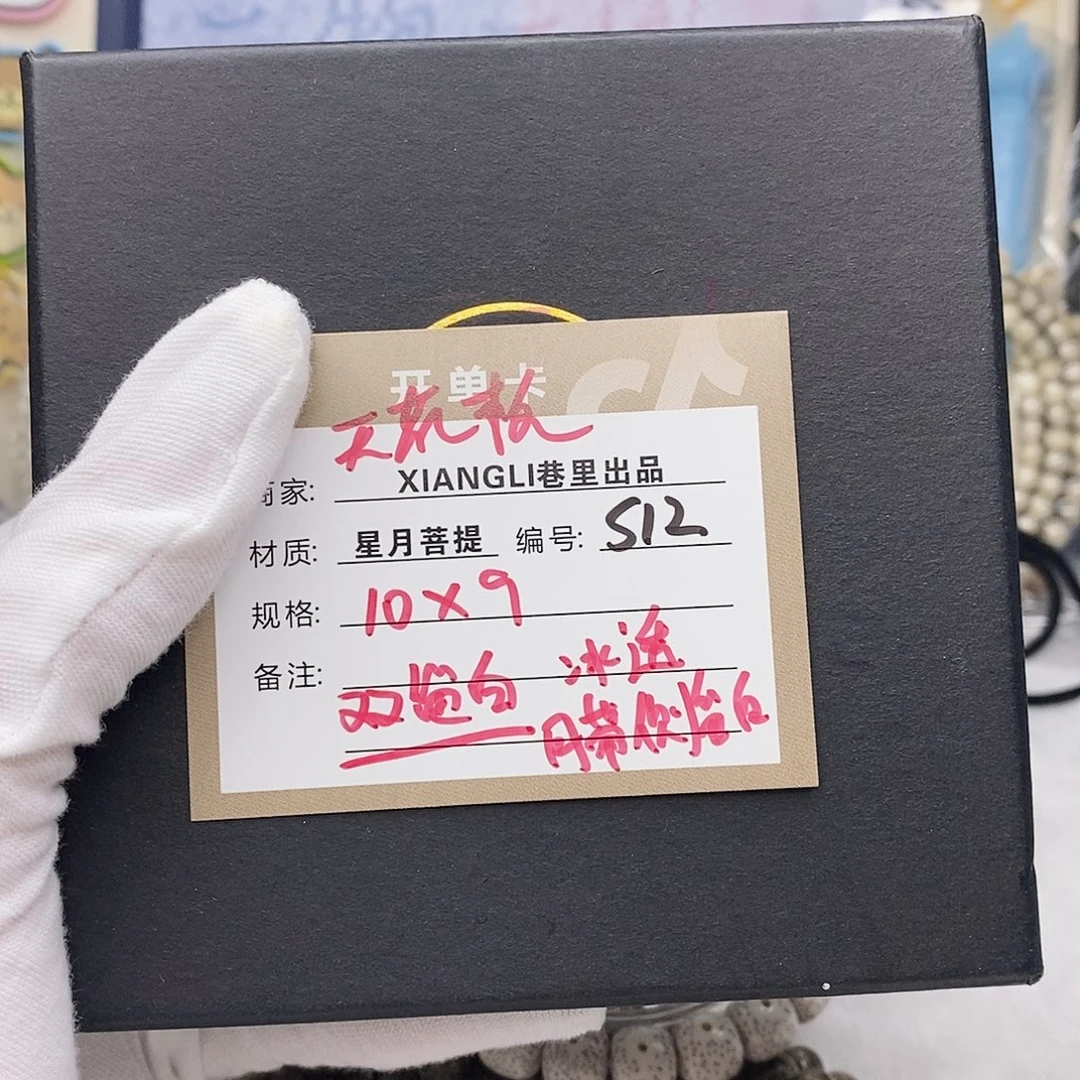 开单卡
天花板
商家: XIANGLI巷里出品
材质: 星月菩提 编号: S12
规格: 10×9
备注: 双瓷白 冰透
月带傲瓷白